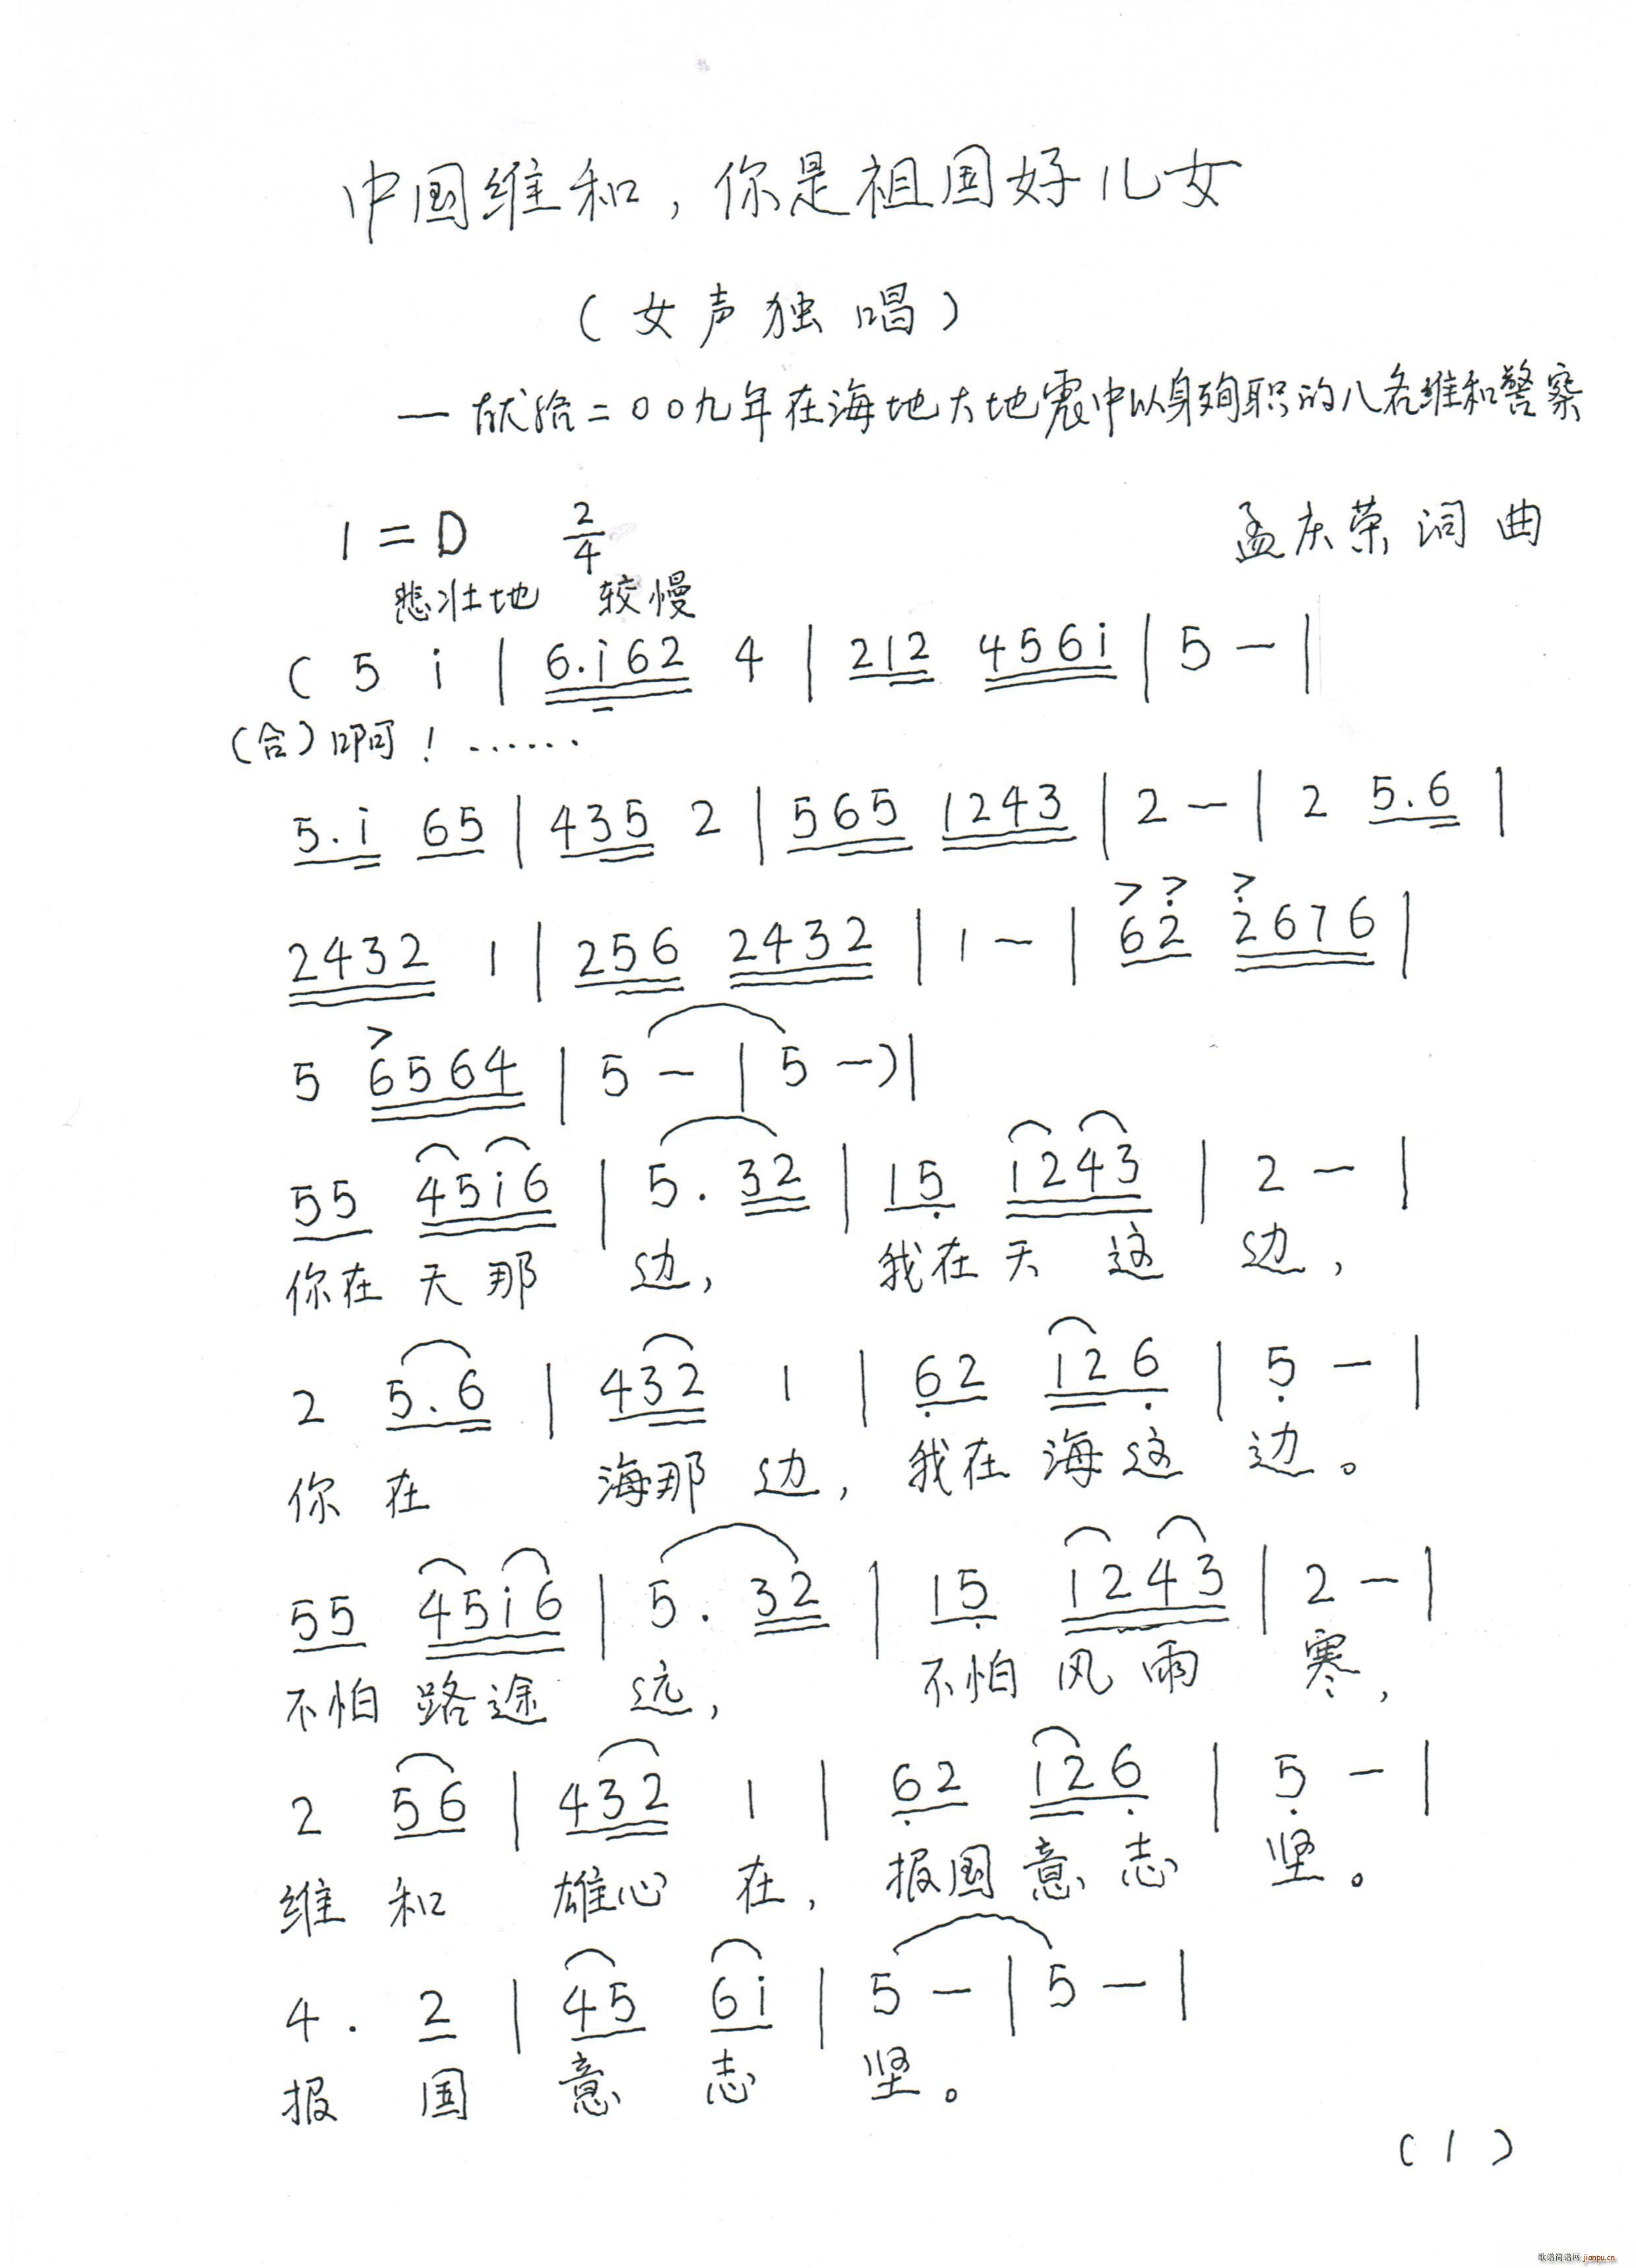 中国维和，你是祖国好儿女
（女声独唱）
— 献给二00九年在海地大地震中以身殉职的八名维和警察
1=D 2/4 孟庆荣词曲
悲壮地 较慢
( 5 i | 6.i62 4 | 212 456i | 5 — |
（合）啊！……
5.i 65 | 435 2 | 565 1243 | 2 — | 2 5.6 |
2432 1 | 256 2432 | 1 — | 62 2676 |
5 6564 | 5 — | 5 —)|
55 45i6 | 5. 32 | 15 1243 | 2 — |
你在天那 边， 我在天 这 边，
2 5.6 | 432 1 | 62 126 | 5 — |
你 在 海那 边，我在 海这 边。
55 45i6 | 5. 32 | 15 1243 | 2 — |
不怕 路途 远， 不怕 风雨 寒，
2 56 | 432 1 | 62 126 | 5 — |
维 和 雄心 在，报国 意志 坚。
4. 2 | 45 6i | 5 — | 5 — |
报 国 意 志 坚。
（1）
歌谱简谱网 jianpu.cn